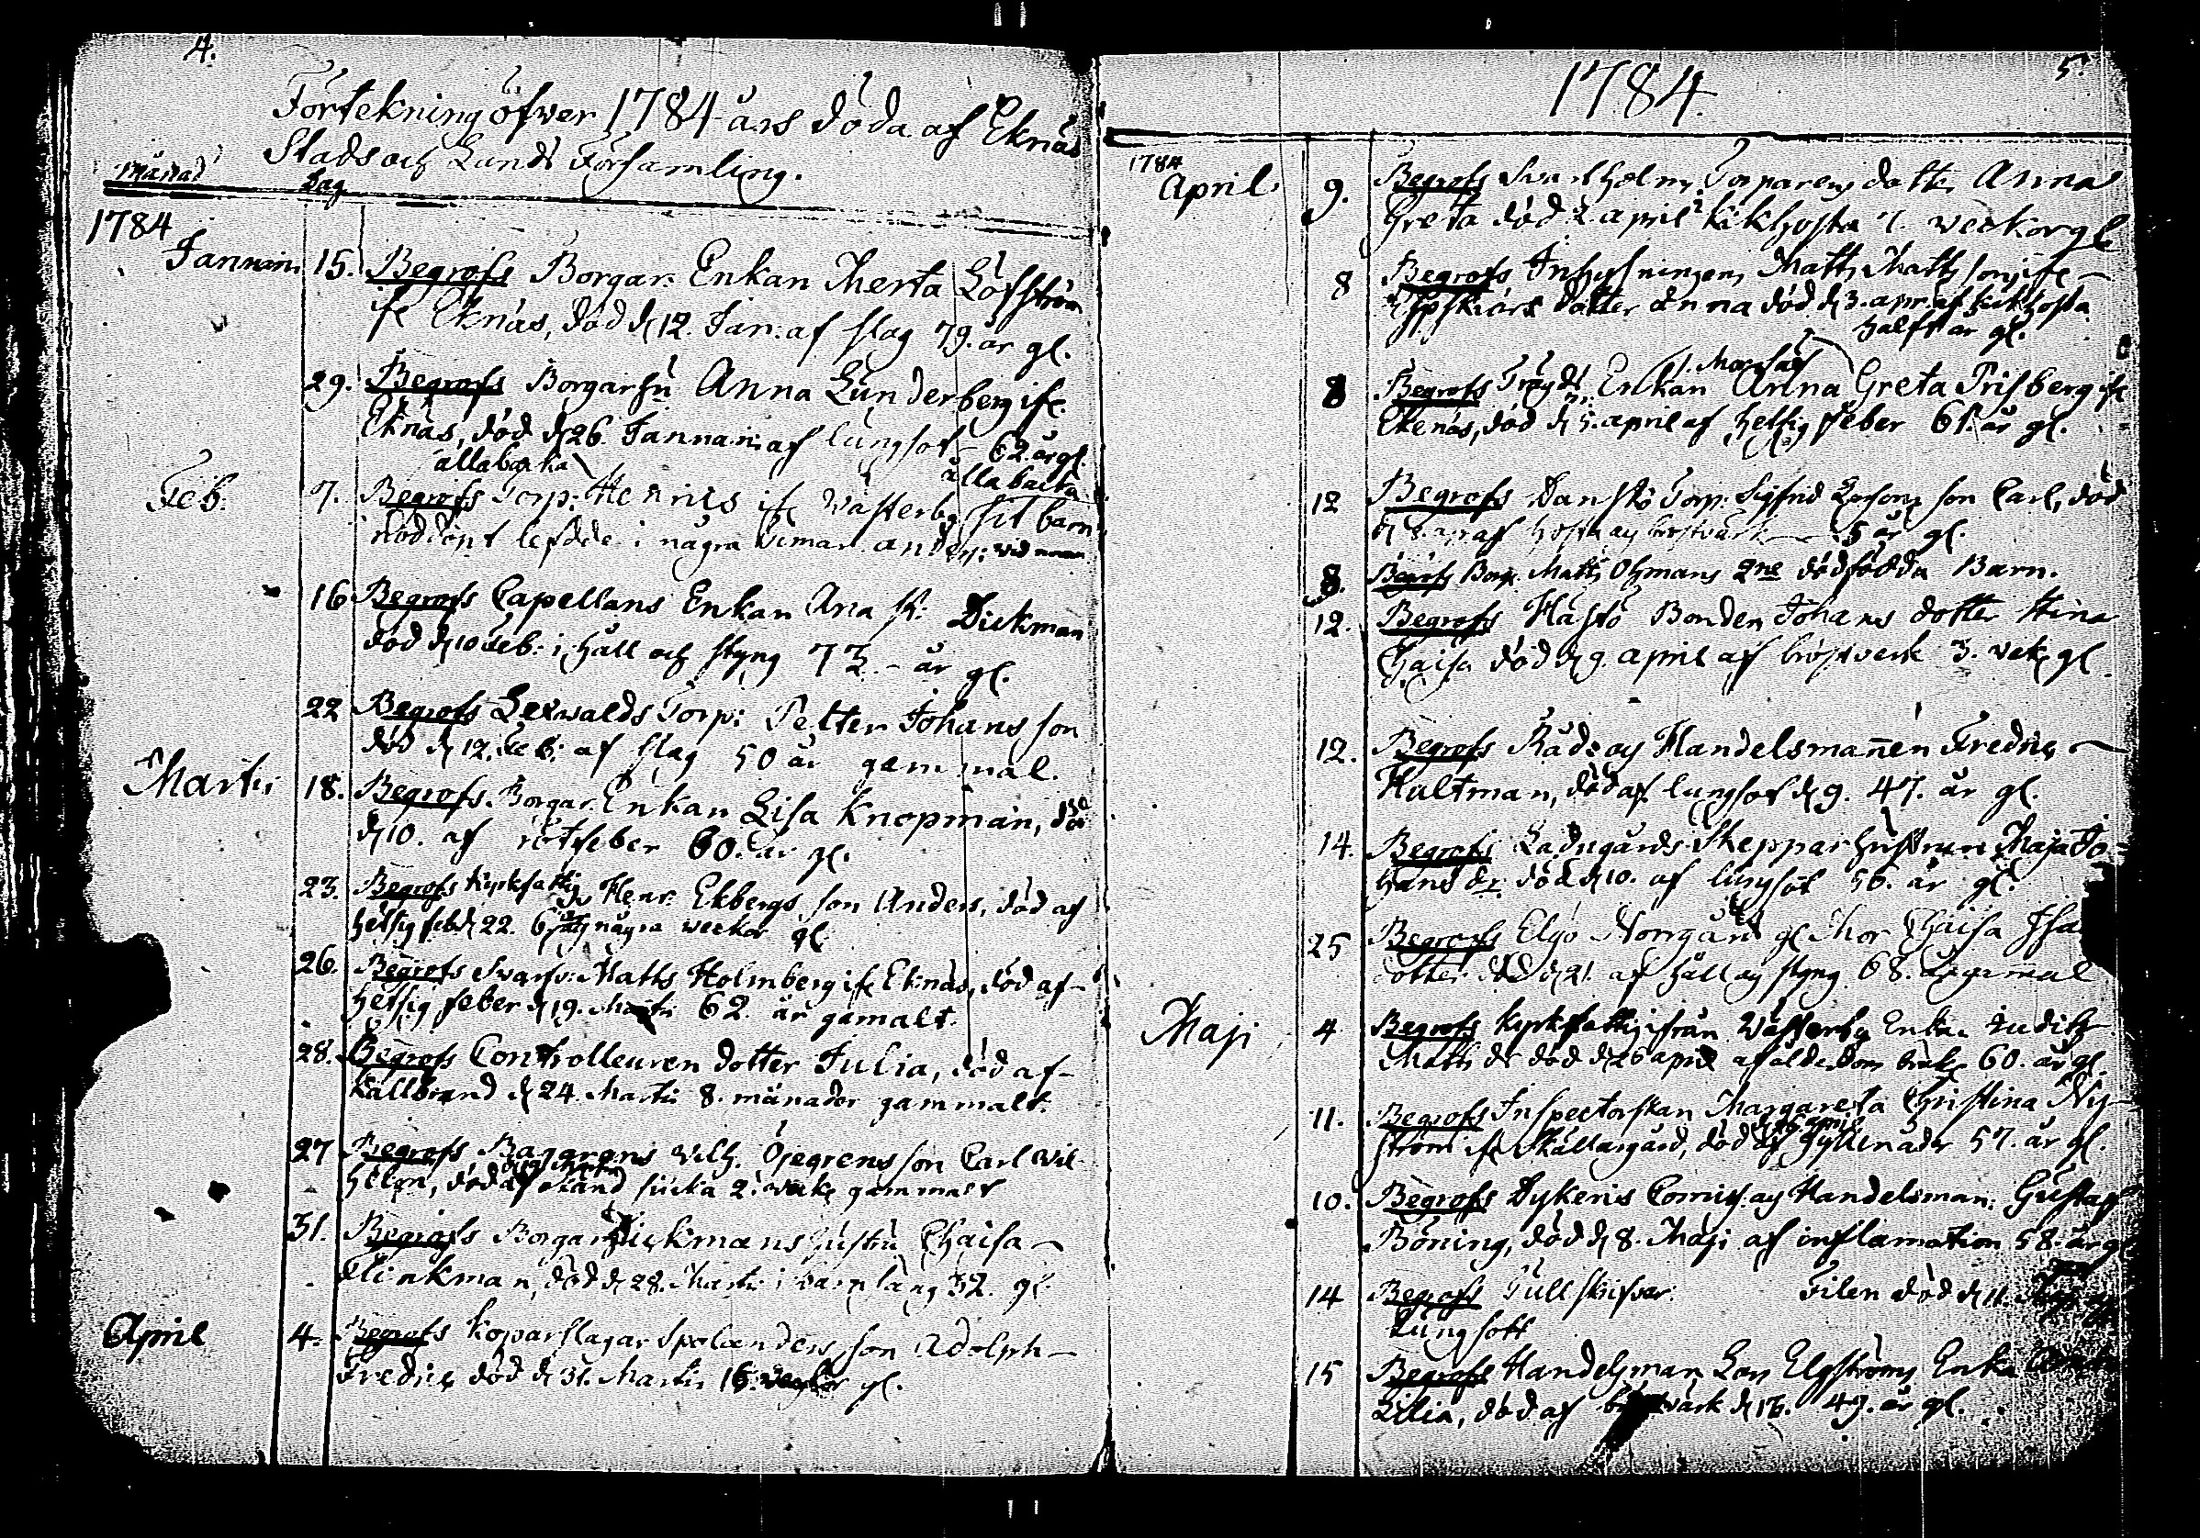 4.
Förtekning öfwer 1784 års döda af Eknäs
Stads och Lands Församling.
Månad Dag
1784
Januarii 15. Begrofs Borgar. Enkan Merta Löfström
ifr Eknäs, död d 12. Jan: af slag 79. år gl.
29. Begrofs Borgarfru Anna Lunderberg ifr
Eknäs, död d 26. Januarii: af lungsot – 62. år gl.
ällabacka
Feb. 7. Begrofs Torp: Henrics ifr Västerby sit barn
nöddöpt lefdde i några timar
16 Begrofs Capellans Enkan Ana Dickman
död d 10 Feb: i håll och styng 73 – år gl.
22 Begrofs Torp: Petter Johansson
död d 12. Feb: af slag 50 år gammal.
Martii 18. Begrofs. Borgar. Enkan Lisa Knopman, död
d 10. af rötfeber 60. år gl.
23. Begrofs Kyrkfattig Henr: Ekbergs son Anders, död af
hetsig feb d 22. 6 några weckor gl.
26. Begrofs Svarfv: Matts Holmberg ifr Eknäs, död af –
hetsig feber d 19. Martii 62. år gamalt.
28. Begrofs Controlleuren dotter Julia, död af –
kallbrand d 24. Martii 8. månader gammalt.
27 Begrofs Wilh. Öjegrens son Carl Wil-
helm, död af okänd siuka 2. weck gammalt
31. Begrofs Borgar Dickmans hustru Chaisa –
Flinkman, död d 28. Martii i barnsäng 32. gl
April 4. Begrofs Koparslagar Spolanders son Adolph –
Fredric död d 31. Martii 16. weckor gl.
1784. 5.
1784
April 9. Begrofs Svartholm Torparens dotter Anna
Greta död 2 april kikhosta 7. weckor gl
8 Begrofs Inhysningens Matts Mattsson ifr –
dotter Anna död d 3. apr. af kikhosta
halft år gl.
8 Begrofs Enkan Anna Greta Frisberg ifr
Ekenäs, död d 5. april af hetsig feber 61. år gl.
12 Begrofs Danskö Torp: Sigfrid Larsons son Carl, död
d 8. apr af hosta och bröstvärk – 5 år gl.
8. Begrofs Borg. Matts Öhmans 2ne dödfödda Barn.
12. Begrofs Hästö Bonden Johans dotter Stina
Chaisa död d 9. april af bröstverk 3. wek gl.
12. Begrofs Råds och Handelsmannen Fredric –
Hultman, död af lungsot d 9. 47. år gl.
14. Begrofs Ladugårds Skeppar hustrun Maja Jo-
hans dr död d 10. af lungsot 56. år gl.
25 Begrofs Elgö Norrgård gl Mor Chaisa
dotter död d 21. af håll och styng 68. år gamal
Maji 4 Begrofs Kyrkfattig ifrån Västerby Enka Judith
Matts dr död d 26 april af ålderdoms bräk 60. år gl.
11. Begrofs Inspectorskan Margareta Christina Ny-
ström ifr Källargård, död af gyllenåder 57. år gl.
10. Begrofs Dykeris Comiss. och Handelsman. Gustaf
Böning, död d 8. Maji af inflamation 58. år gl
14 Begrofs Tullskrifvar. Filen död d 11.
Lungsott
15 Begrofs Handelsman Elgströms Enka
Lilia, död af d 16. 49. år gl.